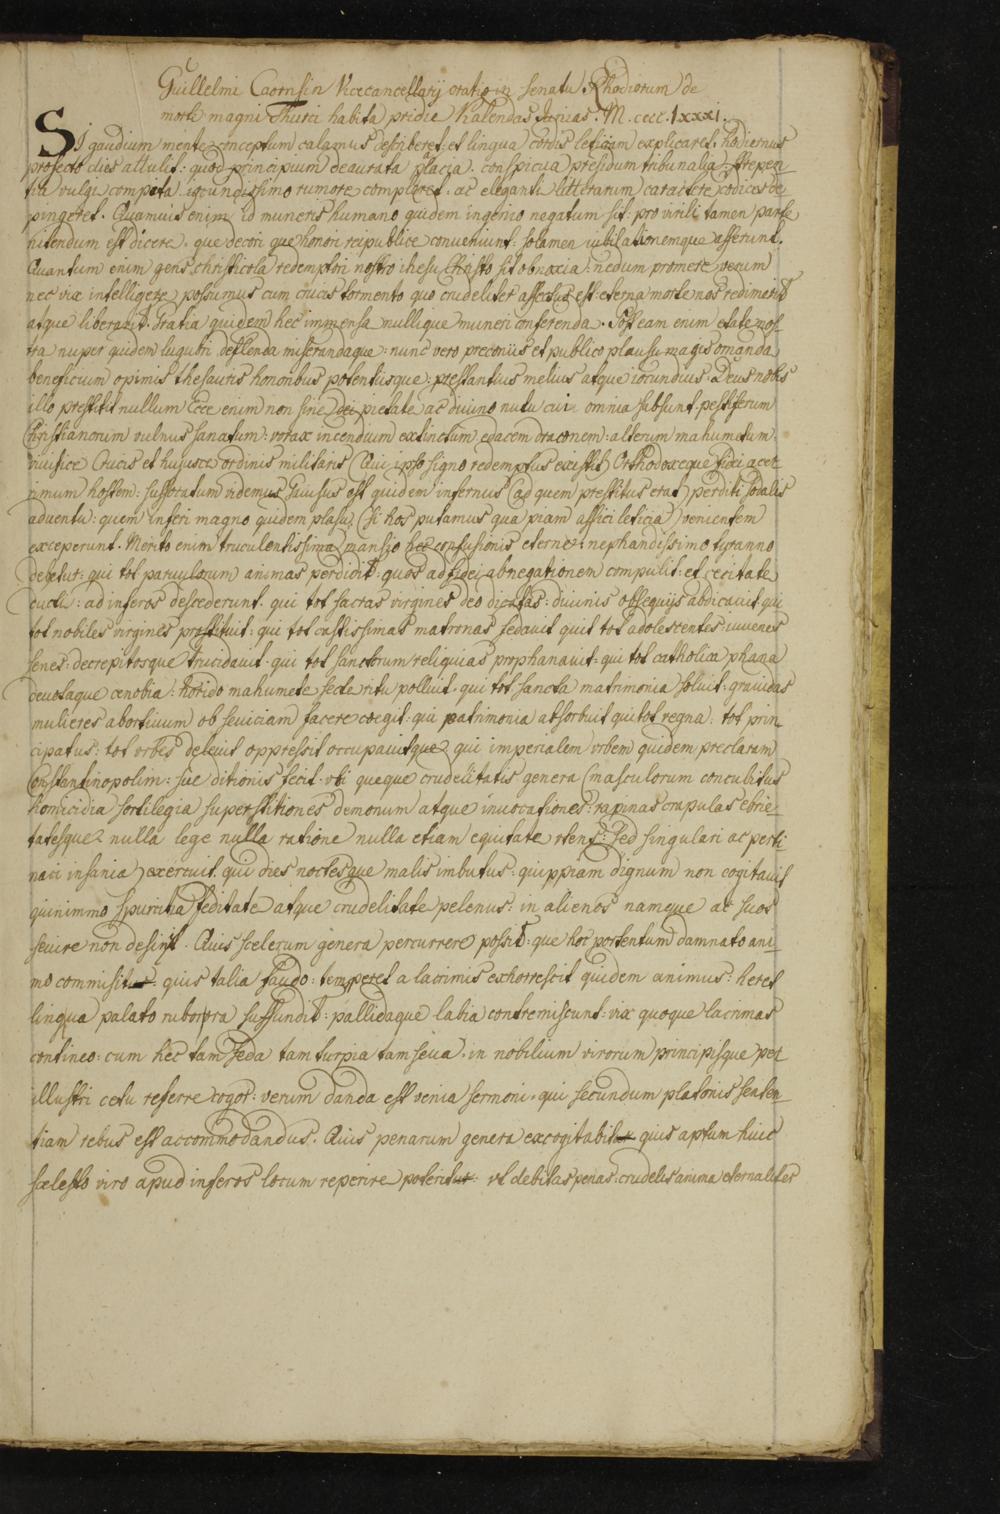 Guillelmi Caorsin Vicecancellarij oratio in senatu Rhodiorum de
morte magni Thurci habita pridie Kalendas Junias. M. cccc. lxxxi.
Si gaudium mente conceptum calamus describeret: et lingua cordis letitiam explicaret. hodiernus
profecto dies attulit. quod principium deaurata palacia. conspicua presidum tribunalia. strepen
tia vulgi compita iocundissimo rumore compleret. ac eleganti litterarum caractere codices de
pingeret. Quamuis enim id muneris humano quidem ingenio negatum sit. pro virili tamen parte
nitendum est dicere. que decori que honori reipublice conveniunt: solamen iubilationemque afferunt.
Quantum enim gens christicola redemptori nostro ihesu Christo sit obnoxia: nedum promere verum
nec vix intelligere possumus cum crucis tormento quo crudeliter affectus est: eterna morte nos redimerit
atque liberarit. Gratia quidem hec immensa nullique muneri conferenda. Post eam enim etate nos
tra nuper quidem lugubri deflenda miserandaque: nunc vero preconiis et publico plausu magis ornanda
beneficium opimis thesauris honoribus potentiisque: prestantius melius atque iocundius. Deus nobis
illo prestitit nullum Ecce enim non sine dei pietate ac diuino nutu cui omnia subsunt. pestiferum
Christianorum vulnus sanatum: vorax incendium extinctum edacem draconem: alterum mahumetum.
viuifice Crucis et hujusce ordinis militaris (Qui ipso signo redemptus existit) Orthodoxeque fidei acer
rimum hostem: suffocatum videmus Gauisus est quidem infernus (ad quem prestitus erat) perditi sodalis
aduentu: quem inferi magno quidem plasu (si hos putamus qua piam affici leticia) venientem
exceperunt. Merito enim truculentissima mansio hec confusionis eterne: nephandissimo tyranno
debetur: qui tot paruulorum animas perdidit: quos ad fidei abnegationem compulit: et cecitate
ducti: ad inferos descederunt. qui tot sacras virgines deo dicatas: diuinis obsequijs abdicauit qui
tot nobiles virgines prostituit: qui tot castissimas matronas fedauit quit tot adolescentes: iuuenes
senes: decrepitosque trucidauit. qui tot sanctorum reliquias prophanauit: qui tot catholica phana
deuotaque cenobia: horido mahumete secte ritu polluit. qui tot sancta matrimonia soluit: grauidas
mulieres abortiuum ob seuiciam facere coegit: qui patrimonia absorbuit qui tot regna: tot prin
cipatus: tot orbes deleuit oppressit occupauitque qui imperialem vrbem quidem preclaram
Constantinopolim: sue ditionis fecit. vbi queque crudelitatis genera (masculorum concubitus
homicidia sortilegia superstitiones demonum atque inuocationes: rapinas crapulas ebrie
tatesque nulla lege nulla ratione nulla etiam equitate vtens: sed singulari ac perti
naci insania) exercuit. qui dies noctesque malis imbutus: quippiam dignum non cogitauit
quinimmo spurcitia feditate atque crudelitate pelenus: in alienos namque ac suos
seuire non desinit. Quis scelerum genera percurrere possit: que hoc portentum damnato ani
mo commisit: quis talia faudo: temperet a lacrimis exhorrescit quidem animus: heret
lingua palato rubor ora suffundit: pallidaque labia contremiscunt: vix quoque lacrimas
contineo: cum hec tam feda tam turpia tam seua. in nobilium virorum principisque per
illustri cetu referre cogor: verum danda est venia sermoni. qui secundum platonis senten
tiam rebus est accommodandus. Quis penarum genera excogitabit quis aptum huic
scelesto viro apud inferos locum reperire poterit: vt debitas penas: crudelis anima eternaliter